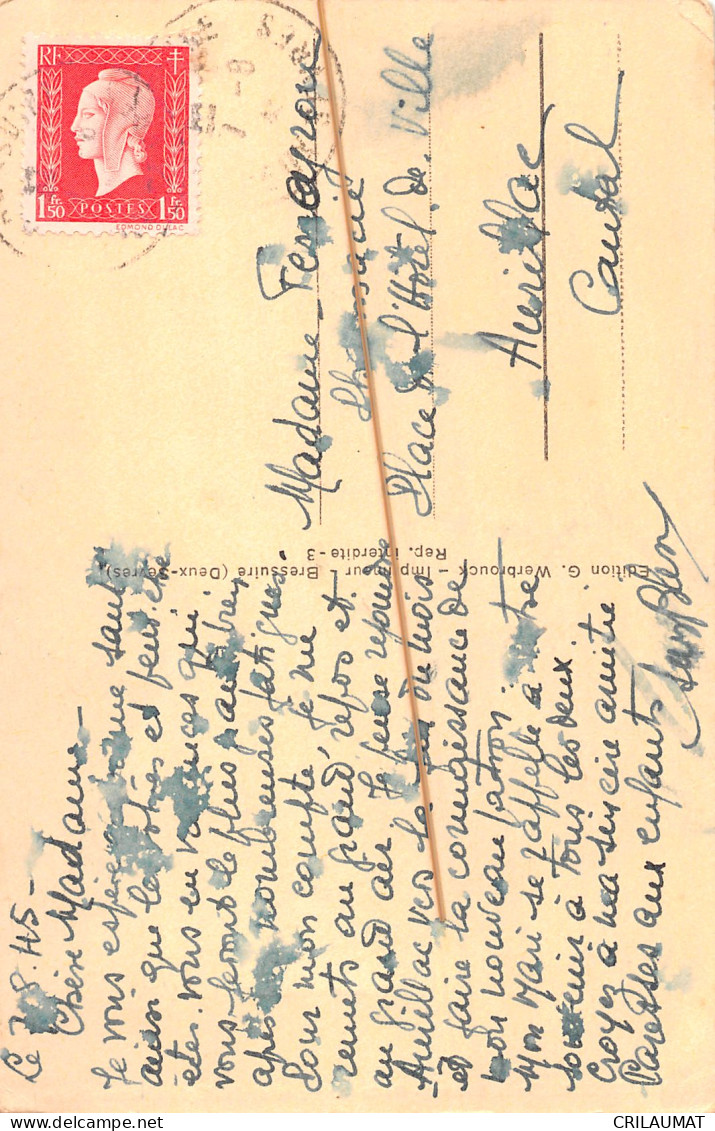 Le 7.8.45 -
Chère Madame -
Je vous espère en bonne santé
ainsi que les vôtres et peut être
êtes-vous en vacances qui
vous feront le plus grand bien
après nombreuses fatigues
Pour mon compte, je me
remets au grand repos et
au grand air. Je pense rejoindre
Aurillac vers la fin du mois
et faire la connaissance de
mon nouveau patron.
Mon Mari se rappelle à votre
souvenir à tous les deux.
Croyez à ma sincère amitié
Caresses aux enfants
Edition G. Werbrouck - Imprimeur - Bressuire (Deux-Sèvres)
Rep. interdite - 3
RF
1 Fr. 50
POSTES
1 Fr. 50
EDMOND DULAC
Madame
Pharmacie
Place de l'Hôtel de Ville
Aurillac
Cantal
CRILAUMAT